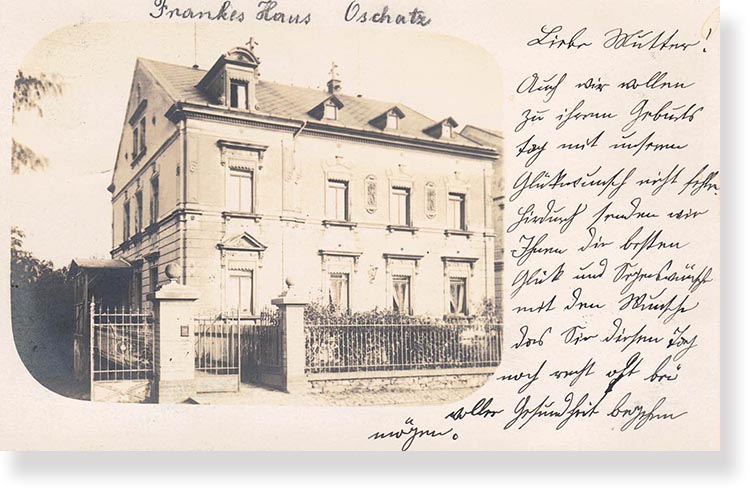 Frankes Haus Oschatz
Liebe Mutter!
Auch wir wollen
zu ihrem Geburts
tag mit unserem
Glükwunsch nicht fehlen
hirdurch senden wir
Ihnen die besten
Glük und Segenswünsche
mit den Wunsche
das Sie diesen Tag
noch recht oft bei
voller Gesundheit begehen
mögen.